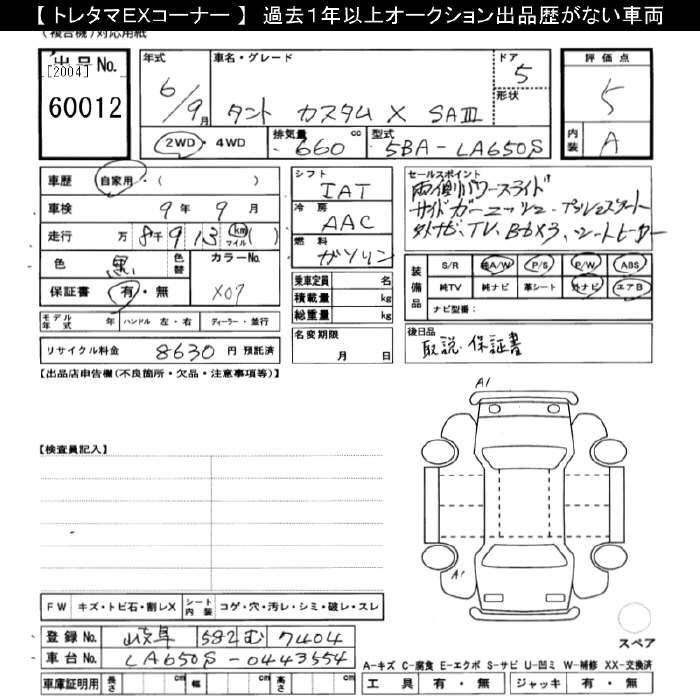 【 トレタマEXコーナー 】 過去1年以上オークション出品歴がない車両
(複合機)対応用紙
出品No.
[2004]
60012
年式
6/9月
車名・グレード
タント カスタム X SAⅢ
ドア
5
形状
評価点
5
内装
A
2WD・4WD
排気量
660 cc
型式
5BA-LA650S
車歴
自家用・( )
車検
9年 9月
走行
万 8千913 km マイル ( )
色
黒
色替
カラーNo.
X07
保証書
有・無
モデル年式 年
ハンドル 左・右
ディーラー・並行
リサイクル料金 8630 円 預託済
シフト
IAT
冷房
AAC
燃料
ガソリン
乗車定員 名
積載量 kg
総重量 kg
名変期限
月 日
セールスポイント
両側パワースライド
外ナビ、TV、Bカメラ、シートヒーター
装備品
S/R
純A/W
P/S
P/W
ABS
純TV
純ナビ
革シート
外ナビ
エアB
ナビ型番:
後日品
取説・保証書
【出品店申告欄(不良箇所・欠品・注意事項等)】
【検査員記入】
A1
A1
FW
キズ・トビ石・割レX
シート内装
コゲ・穴・汚レ・シミ・破レ・スレ
登録No.
岐阜 582 む 7404
車台No.
LA650S-0443554
車庫証明用
長さ cm
幅 cm
高さ cm
スペア
A-キズ C-腐食 E-エクボ S-サビ U-凹ミ W-補修 XX-交換済
工具 有・無
ジャッキ 有・無